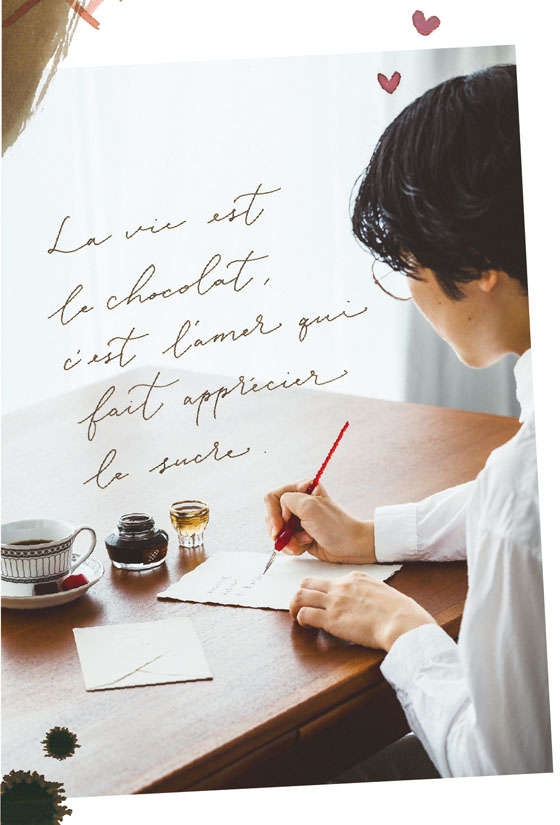 La vie est
le chocolat,
c'est l'amer qui
fait apprécier
le sucre.